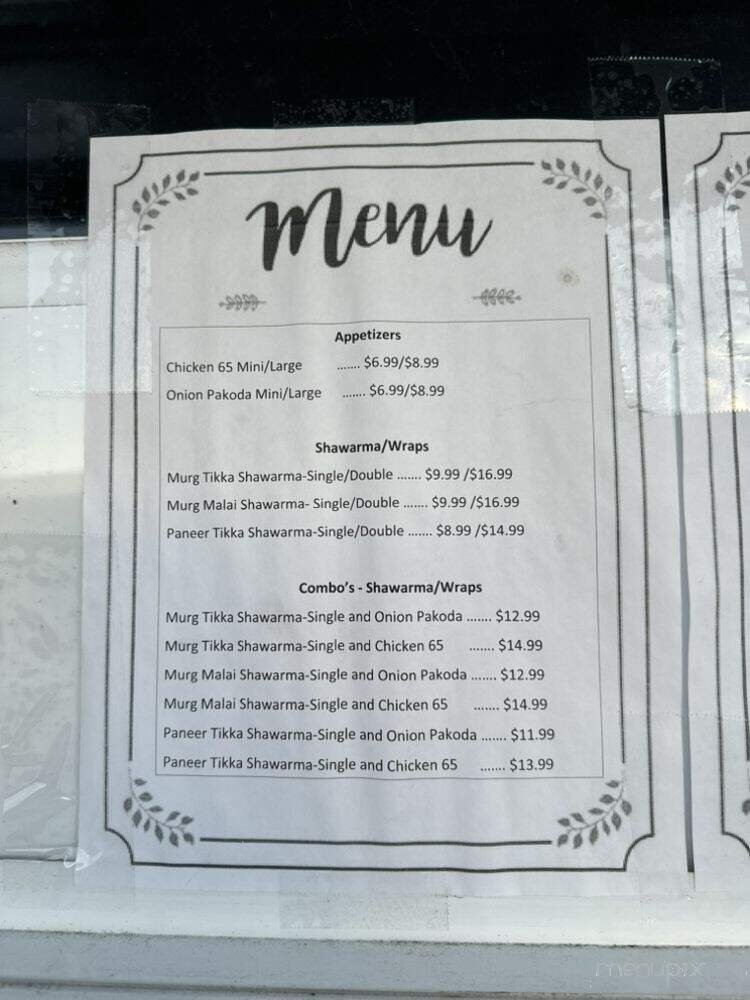 Menu
Appetizers
Chicken 65 Mini/Large ....... $6.99/$8.99
Onion Pakoda Mini/Large ....... $6.99/$8.99
Shawarma/Wraps
Murg Tikka Shawarma-Single/Double ....... $9.99 /$16.99
Murg Malai Shawarma- Single/Double ....... $9.99 /$16.99
Paneer Tikka Shawarma-Single/Double ....... $8.99 /$14.99
Combo's - Shawarma/Wraps
Murg Tikka Shawarma-Single and Onion Pakoda ....... $12.99
Murg Tikka Shawarma-Single and Chicken 65 ....... $14.99
Murg Malai Shawarma-Single and Onion Pakoda ....... $12.99
Murg Malai Shawarma-Single and Chicken 65 ....... $14.99
Paneer Tikka Shawarma-Single and Onion Pakoda ....... $11.99
Paneer Tikka Shawarma-Single and Chicken 65 ....... $13.99
menupix